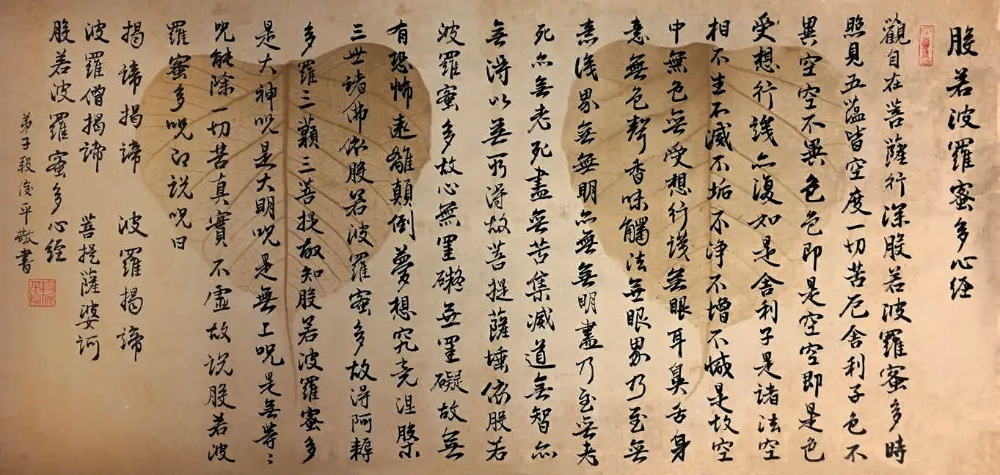 般若波羅蜜多心经
觀自在菩薩行深般若波羅蜜多時
照見五蕴皆空度一切苦厄舍利子色不
異空空不異色色即是空空即是色
受想行識亦復如是舍利子是諸法空
相不生不滅不垢不净不增不减是故空
中無色無受想行識無眼耳鼻舌身
意無色聲香味觸法無眼界乃至無
意識界無無明亦無無明盡乃至無老
死亦無老死盡無苦集滅道無智亦
無得以無所得故菩提薩埵依般若
波羅蜜多故心無罣礙無罣礙故無
有恐怖遠離顛倒夢想究竟涅槃
三世諸佛依般若波羅蜜多故得阿耨
多羅三藐三菩提故知般若波羅蜜多
是大神咒是大明咒是無上咒是無等〻
咒能除一切苦真實不虛故說般若波
羅蜜多咒即說咒曰
揭諦揭諦 波羅揭諦
波羅僧揭諦 菩提薩婆訶
般若波羅蜜多心经
弟子平敬書